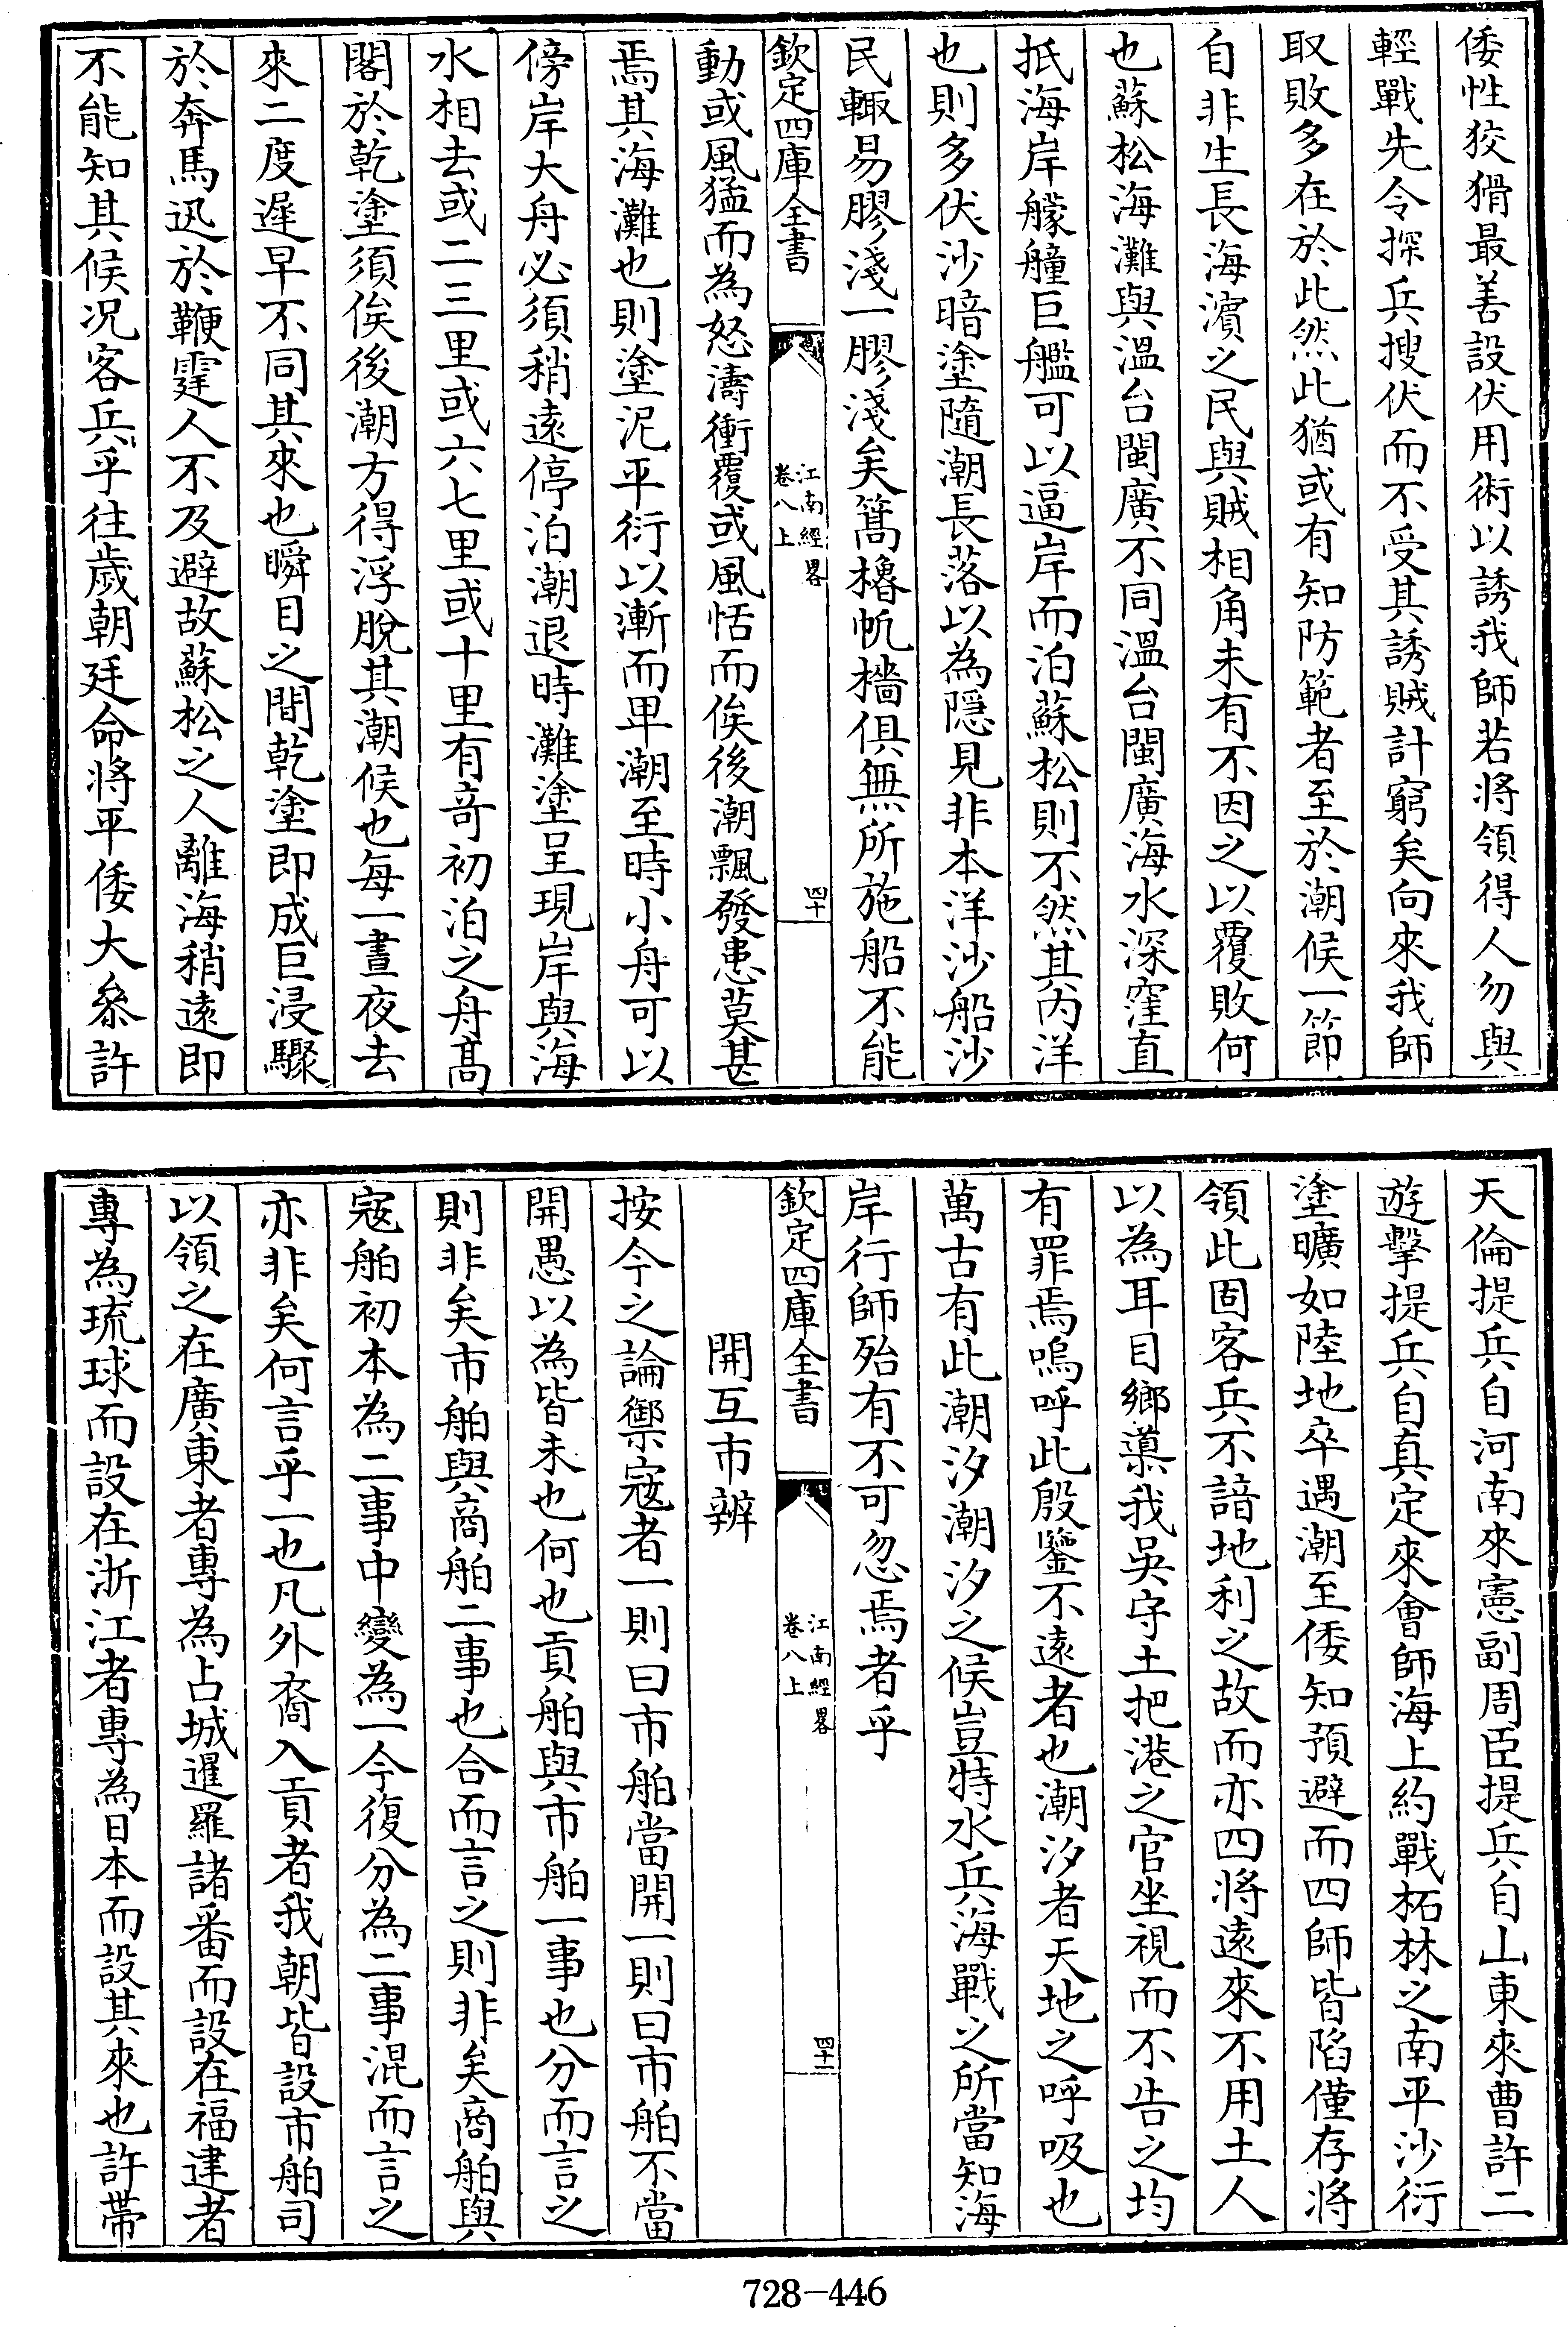 倭性狡猾最善設伏用術以誘我師若將領得人勿與
輕戰先令探兵搜伏而不受其誘賊計窮矣向來我師
取敗多在於此然此猶或有知防範者至於潮候一節
自非生長海濱之民與賊相角未有不因之以覆敗何
也蘇松海灘與溫台閩廣不同溫台閩廣海水深窪直
抵海岸艨艟巨艦可以逼岸而泊蘇松則不然其內洋
也則多伏沙暗塗隨潮長落以為隱見非本洋沙船沙
民輙易膠淺一膠淺矣篙櫓帆檣俱無所施船不能
欽定四庫全書
江南經畧
卷八上
四十
動或風猛而為怒濤衝覆或風恬而俟後潮飄發患莫甚
焉其海灘也則塗泥平衍以漸而卑潮至時小舟可以
傍岸大舟必須稍遠停泊潮退時灘塗呈現岸與海
水相去或二三里或六七里或十里有奇初泊之舟髙
閣於乾塗須俟後潮方得浮脫其潮候也每一晝夜去
來二度遲早不同其來也瞬目之間乾塗即成巨浸驟
於奔馬迅於鞭霆人不及避故蘇松之人離海稍遠即
不能知其候况客兵乎往歲朝廷命將平倭大叅許
天倫提兵自河南來憲副周臣提兵自山東來曹許二
遊擊提兵自真定來會師海上約戰柘林之南平沙衍
塗曠如陸地卒遇潮至倭知預避而四師皆陷僅存將
領此固客兵不諳地利之故而亦四將遠來不用土人
以為耳目鄉導我吳守土把港之官坐視而不告之均
有罪焉嗚呼此殷鑒不遠者也潮汐者天地之呼吸也
萬古有此潮汐潮汐之候豈特水兵海戰之所當知海
岸行師殆有不可忽焉者乎
欽定四庫全書
江南經畧
卷八上
四十一
開互市辨
按今之論禦寇者一則曰市舶當開一則曰市舶不當
開愚以為皆未也何也貢舶與市舶一事也分而言之
則非矣市舶與商舶二事也合而言之則非矣商舶與
寇舶初本為二事中變為一今復分為二事混而言之
亦非矣何言乎一也凡外裔入貢者我朝皆設市舶司
以領之在廣東者專為占城暹羅諸番而設在福建者
專為琉球而設在浙江者專為日本而設其來也許帶
728－446